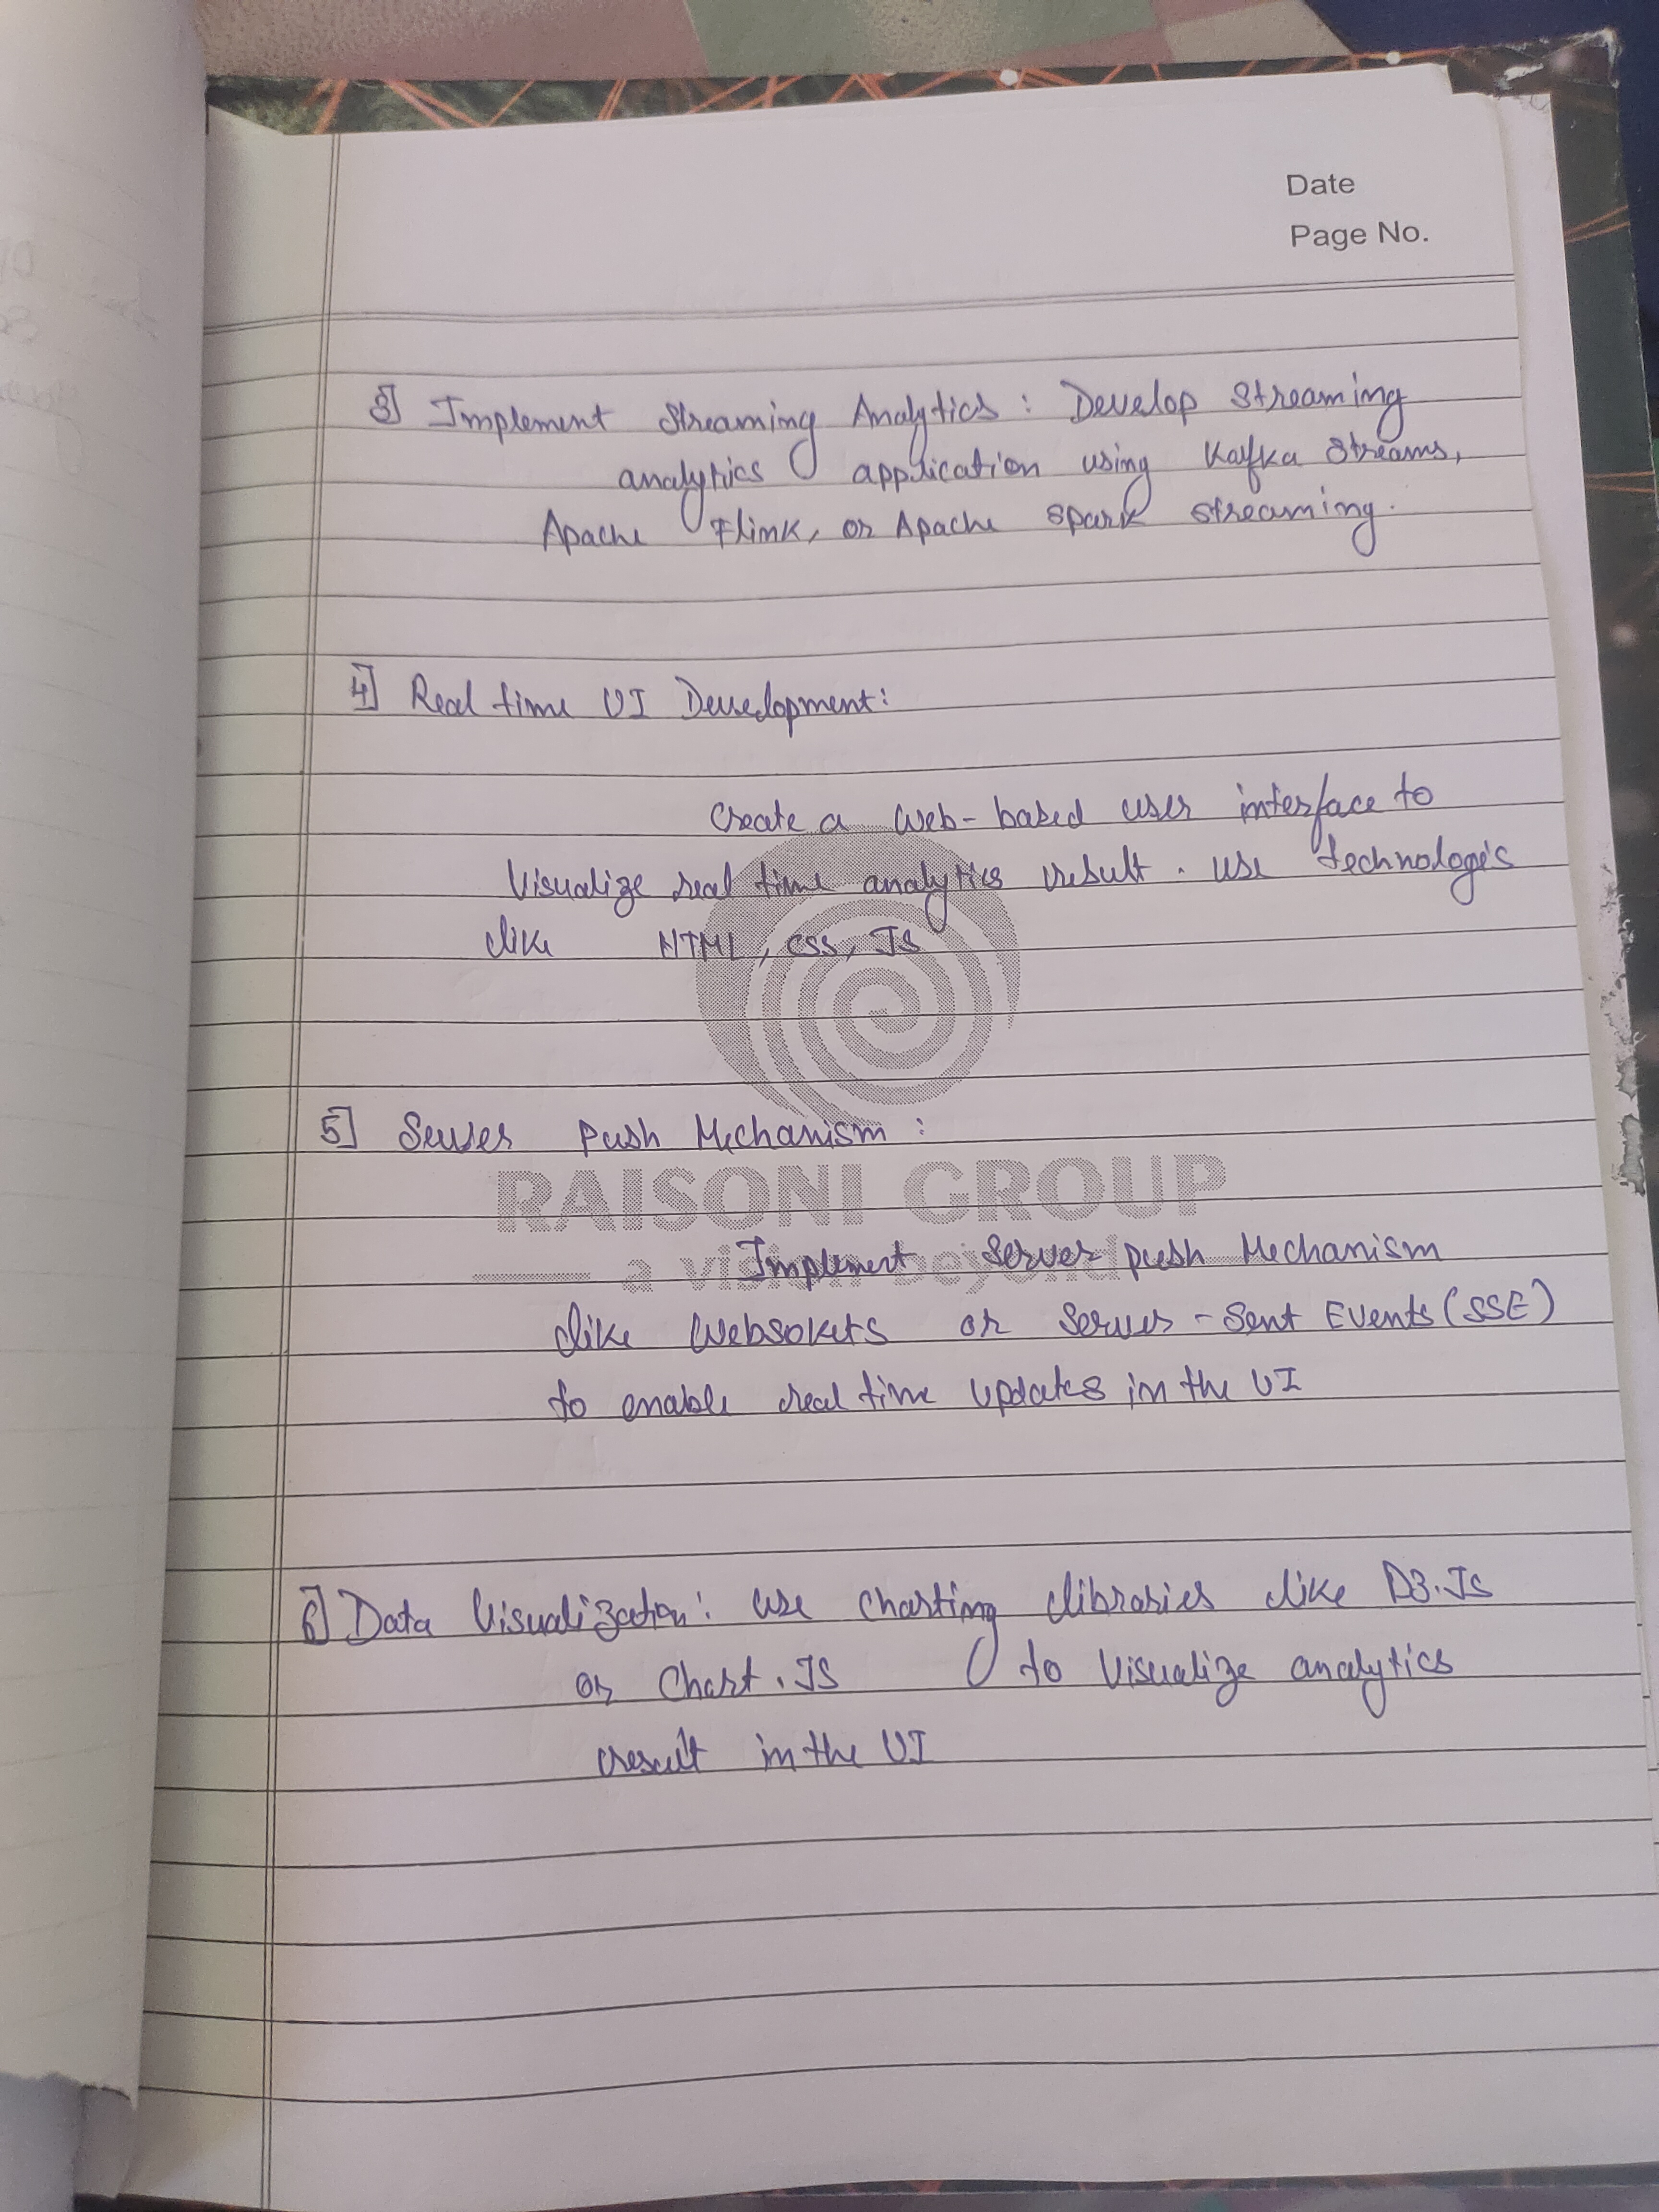 Date
Page No.
3] Implement Streaming Analytics : Develop Streaming
analytics application using Kafka Streams,
Apache Flink, or Apache Spark streaming.
4] Real time UI Development:
Create a Web-based user interface to
Visualize real time analytics result. Use technologis
like HTML, CSS, JS
5] Server Push Mechanism :
RAISONI GROUP
a vision beyond
Implement Server push Mechanism
like Websokets or Server-Sent Events (SSE)
to enable real time updates in the UI
6] Data Visualization: Use Charting libraries like D3.JS
or Chart.JS to Visualize analytics
result in the UI